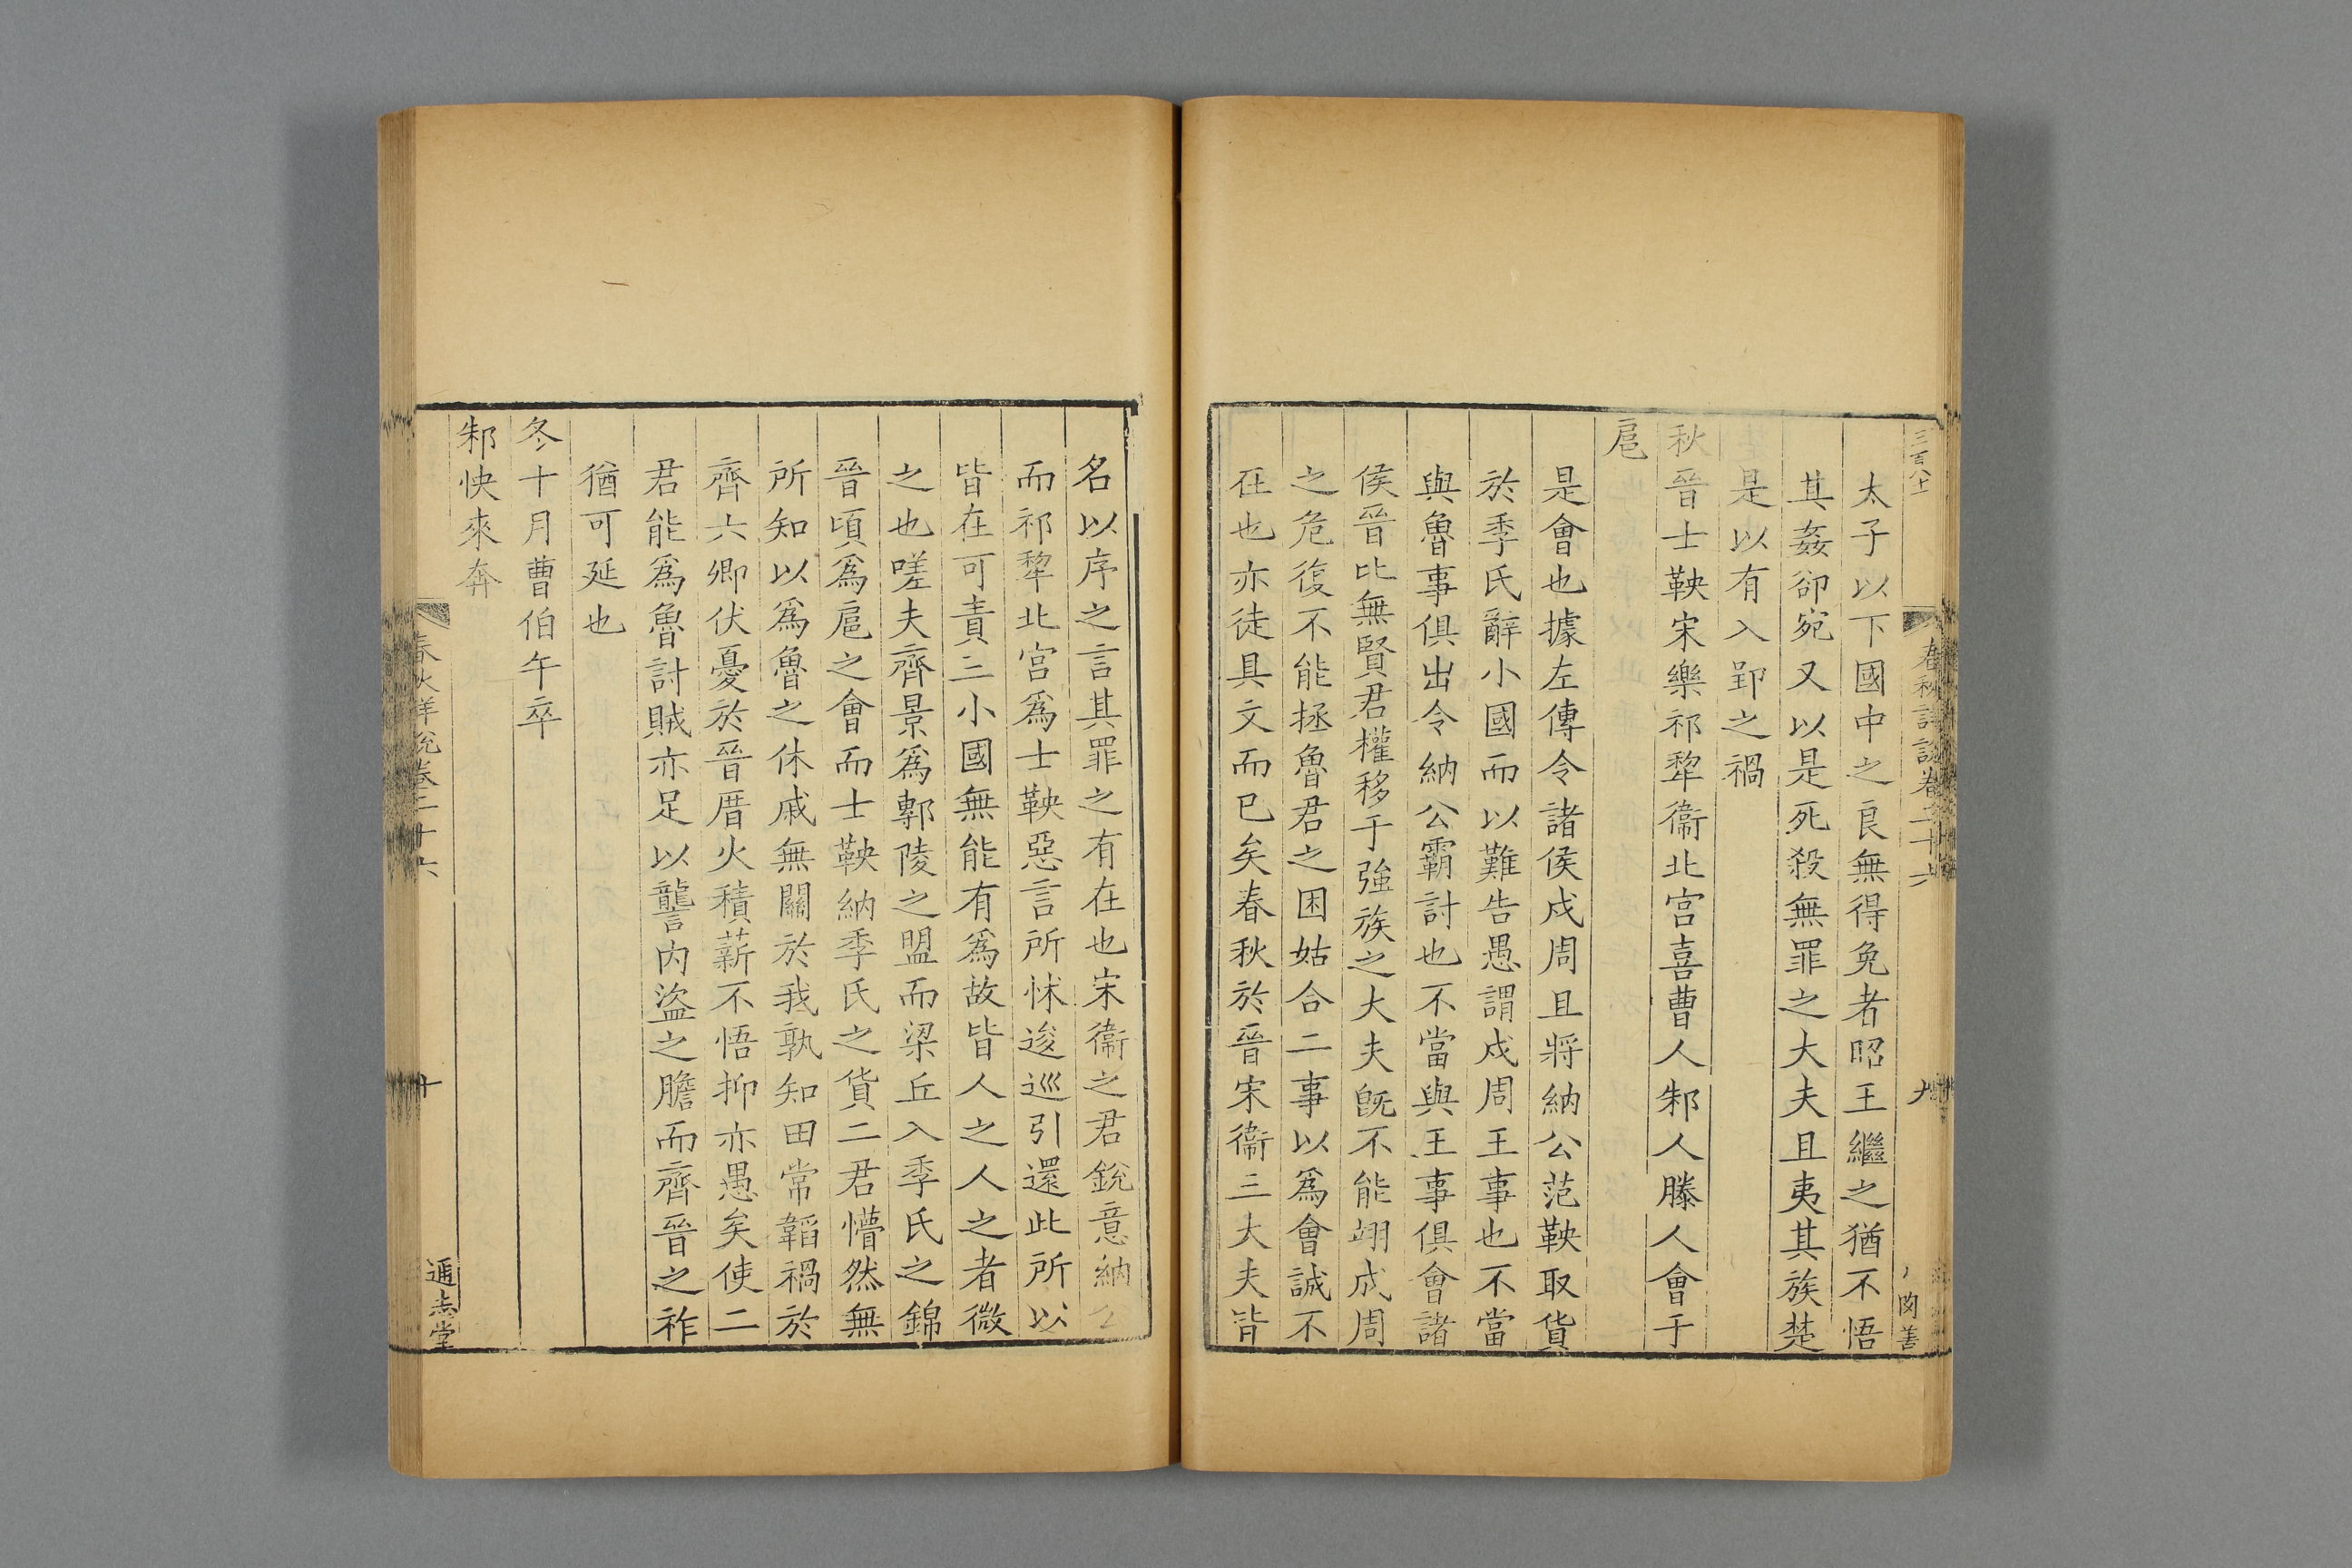 三百八十
春秋詳說卷二十六
九
太子以下國中之良無得免者昭王繼之猶不悟
其姦郤宛又以是死殺無罪之大夫且夷其族楚
是以有入郢之禍
秋晉士鞅宋樂祁犂衞北宮喜曹人邾人滕人會于
扈
是會也據左傳令諸侯戍周且將納公范鞅取貨
於季氏辭小國而以難告愚謂戍周王事也不當
與魯事俱出令納公霸討也不當與王事俱會諸
侯晉比無賢君權移于強族之大夫旣不能翊戍周
之危復不能拯魯君之困姑合二事以爲會誠不
在也亦徒具文而已矣春秋於晉宋衞三大夫皆
名以序之言其罪之有在也宋衞之君銳意納公
而祁犂北宮爲士鞅惡言所怵逡巡引還此所以
皆在可責三小國無能有爲故皆人之人之者微
之也嗟夫齊景爲鄟陵之盟而梁丘入季氏之錦
晉頃爲扈之會而士鞅納季氏之貨二君懵然無
所知以爲魯之休戚無關於我孰知田常韜禍於
齊六卿伏憂於晉厝火積薪不悟抑亦愚矣使二
君能爲魯討賊亦足以讋內盜之膽而齊晉之祚
猶可延也
冬十月曹伯午卒
邾快來奔
春秋詳說卷二十六
十
通志堂